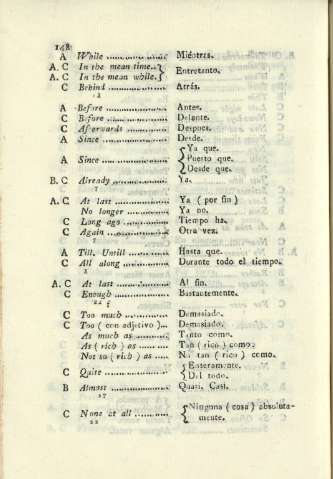 148
A While .................. Miéntras.
A. C In the mean time..} Entretanto.
A. C In the mean while.}
C Behind ............... Atrás.
12
A Before ................ Antes.
C Before ................ Delante.
C Afterwards ............ Despues.
A Since ................. Desde.
A Since ................. { Ya que.
Puesto que.
Desde que.
B. C Already ............... Ya.
7
A. C At last ............... Ya ( por fin )
No longer ............. Ya no.
C Long ago .............. Tiempo ha.
C Again ................. Otra vez.
A Till, Untill .......... Hasta que.
C All along ............. Durante todo el tiempo.
A. C At last ............... Al fin.
C Enough ................ Bastantemente.
C Too much .............. Demasiado.
C Too ( con adjetivo )... Demasiado.
As much as ............ Tanto como.
As ( rich ) as ........ Tan ( rico ) como.
Not so ( rich ) as .... No tan ( rico ) como.
C Quite ................. { Enteramente.
Del todo.
B Almost ................ Quasi, Casi.
27
C None at all ........... { Ninguna ( cosa ) absoluta-
mente.
22